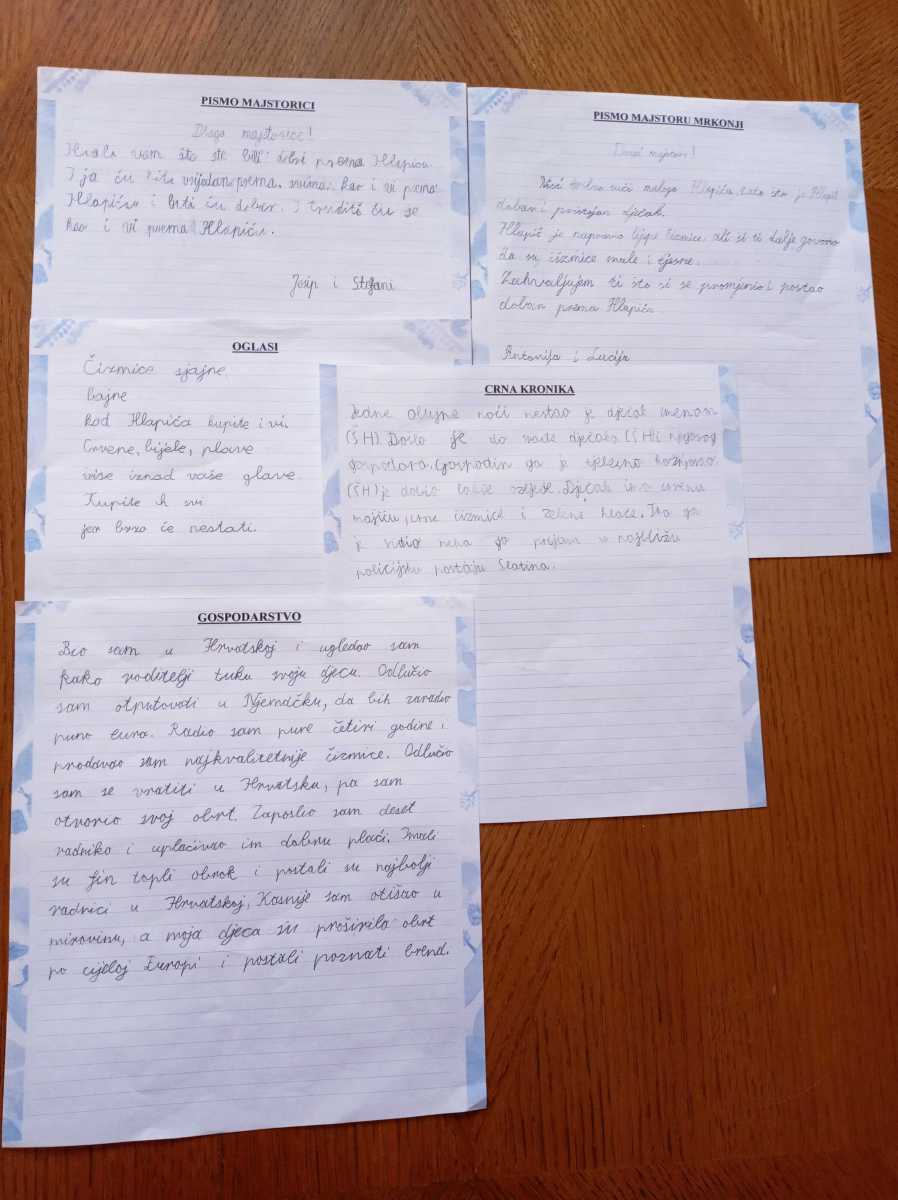 PISMO MAJSTORICI
Draga majstorice!
Hvala vam što ste bili dobri prema Hlapiću.
I ja ću biti vrijedan prema svima kao i vi prema
Hlapiću i biti ću dobar. I trudit ću se
kao i vi prema Hlapiću.
Josip i Stefani
PISMO MAJSTORU MRKONJI
Dragi majstore!
trebao tući maloga Hlapića zato što je Hlapić
dobar i pristojan dječak.
Hlapić je napravio lijepe čizmice, ali si ti dalje govorio
da su čizmice male i tjesne.
Zahvaljujem ti što si se promjenio i postao
dobar prema Hlapiću.
Antonija i Lucija
OGLASI
Čizmice sjajne,
bajne
kod Hlapića kupite i vi.
Crvene, bijele, plave
više iznad vaše glave.
Kupite h svi
jer brzo će nestati.
CRNA KRONIKA
Jedne olujne noći nestao je dječak imenom
(ŠH). Došlo je do svađe dječaka (ŠH) i njegovog
gospodara. Gospodin ga je tjelesno kaznjavao.
(ŠH) je dobio lakše ozljede. Dječak ima crvenu
majicu, crne čizmice i zelene hlače. Tko ga
je vidio neka ga prijavi u najbližu
policijsku postaju Slatina.
GOSPODARSTVO
Bio sam u Hrvatskoj i ugledao sam
kako roditelji tuku svoju djecu. Odlučio
sam otputovati u Njemačku, da bih zaradio
puno eura. Radio sam pune četiri godine i
prodavao sam najkvalitetnije čizmice. Odlučio
sam se vratiti u Hrvatsku, pa sam
otvorio svoj obrt. Zaposlio sam deset
radnika i uplaćivao im dobru plaći. Imali
su fin topli obrok i postali su najbolji
radnici u Hrvatskoj. Kasnije sam otišao u
mirovinu, a moja djeca su proširila obrt
po cijeloj Europi i postali poznati brend.